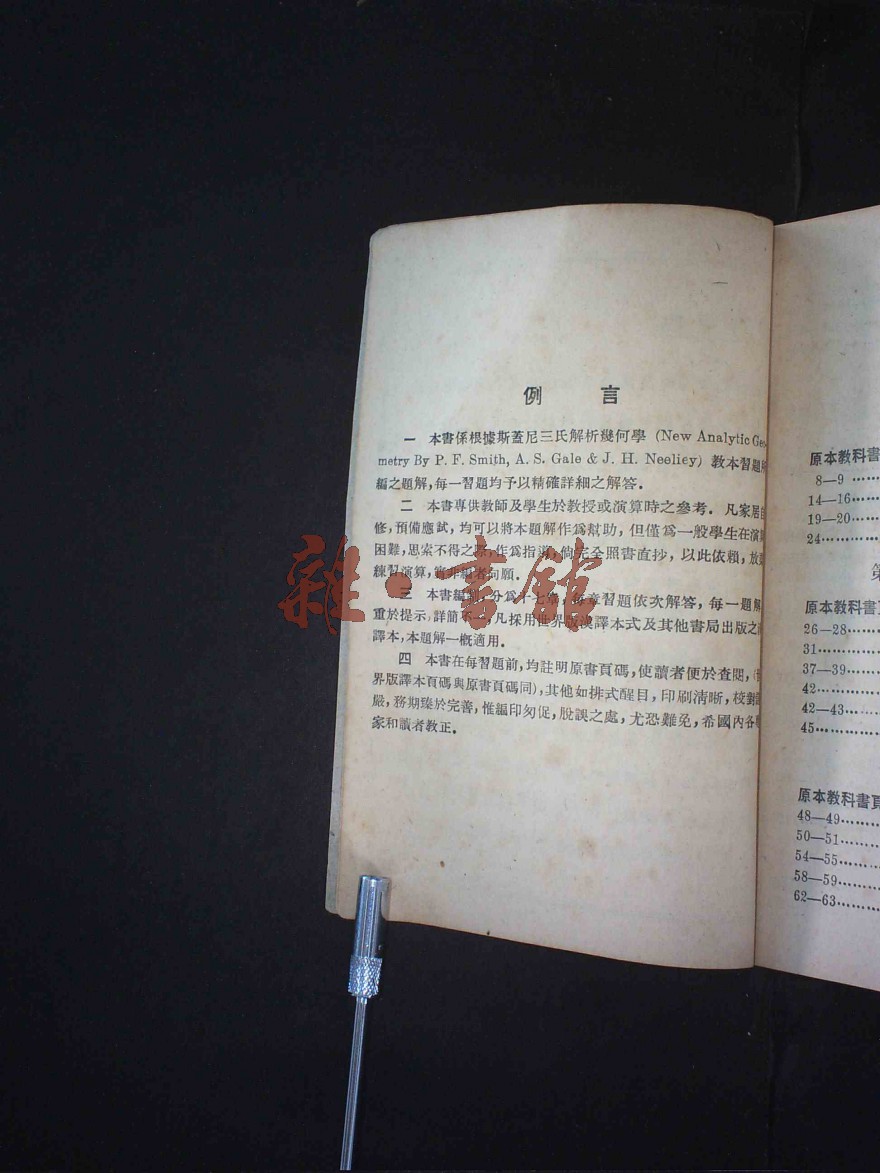 例 言
一 本書係根據斯蓋尼三氏解析幾何學 (New Analytic Geo-
metry By P. F. Smith, A. S. Gale & J. H. Neeliey) 教本習題所
編之題解,每一習題均予以精確詳細之解答.
二 本書專供教師及學生於教授或演算時之參考. 凡家居自
修,預備應試,均可以將本題解作爲幫助,但僅爲一般學生在演
困難,思索不得之際,作爲指導,倘完全照書直抄,以此依賴,放棄
練習演算,實非編者
三 本書編 分爲十七章,每章習題依次解答,每一題解
重於提示,詳簡不一,凡採用世界版漢譯本式及其他書局出版之
譯本,本題解一概適用.
四 本書在每習題前,均註明原書頁碼,使讀者便於查閱,(世
界版譯本頁碼與原書頁碼同),其他如排式醒目,印刷清晰,校對
嚴,務期臻於完善,惟編印匆促,脫誤之處,尤恐難免,希國內各
家和讀者教正.
原本教科書
8—9
14—16
19—20
24
第
原本教科書頁
26—28
31
37—39
42
42—43
45
原本教科書頁
48—49
50—51
54—55
58—59
62—63
雜·書館